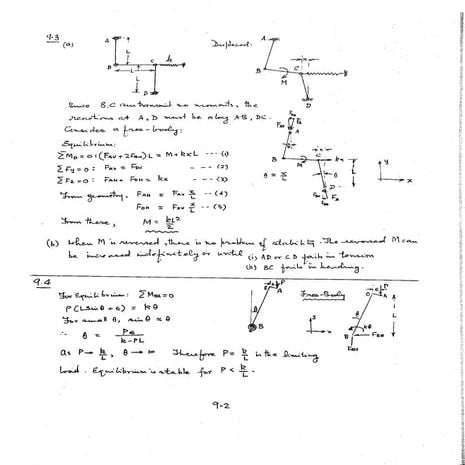 9.3 (a)
Displaced:
Since B,C can transmit no moments, the
reactions at A, D must be along AB, DC.
Consider a free-body:
Equilibrium:
ΣM_D = 0 : (F_AV + 2F_AH) L = M + kxL ---- (1)
ΣF_y = 0 : F_AV = F_DV --- (2)
ΣF_x = 0 : F_AH + F_DH = kx --- (3)
From geometry, F_AH = F_AV x/L -- (4)
F_DH = F_DV x/L -- (5)
From these, M = kL²/2
θ = x/L
(b) When M is reversed, there is no problem of stability. The reversed M can
be increased indefinitely or until (i) AB or CD fails in tension
(ii) BC fails in bending.
9.4
For Equilibrium: ΣM = 0
P(L sin θ + e) = kθ
For small θ, sin θ ≈ θ
∴ θ = Pe/(k-PL)
As P → k/L, θ → ∞ Therefore P = k/L is the limiting
load. Equilibrium is stable for P < k/L.
Free-Body
9-2